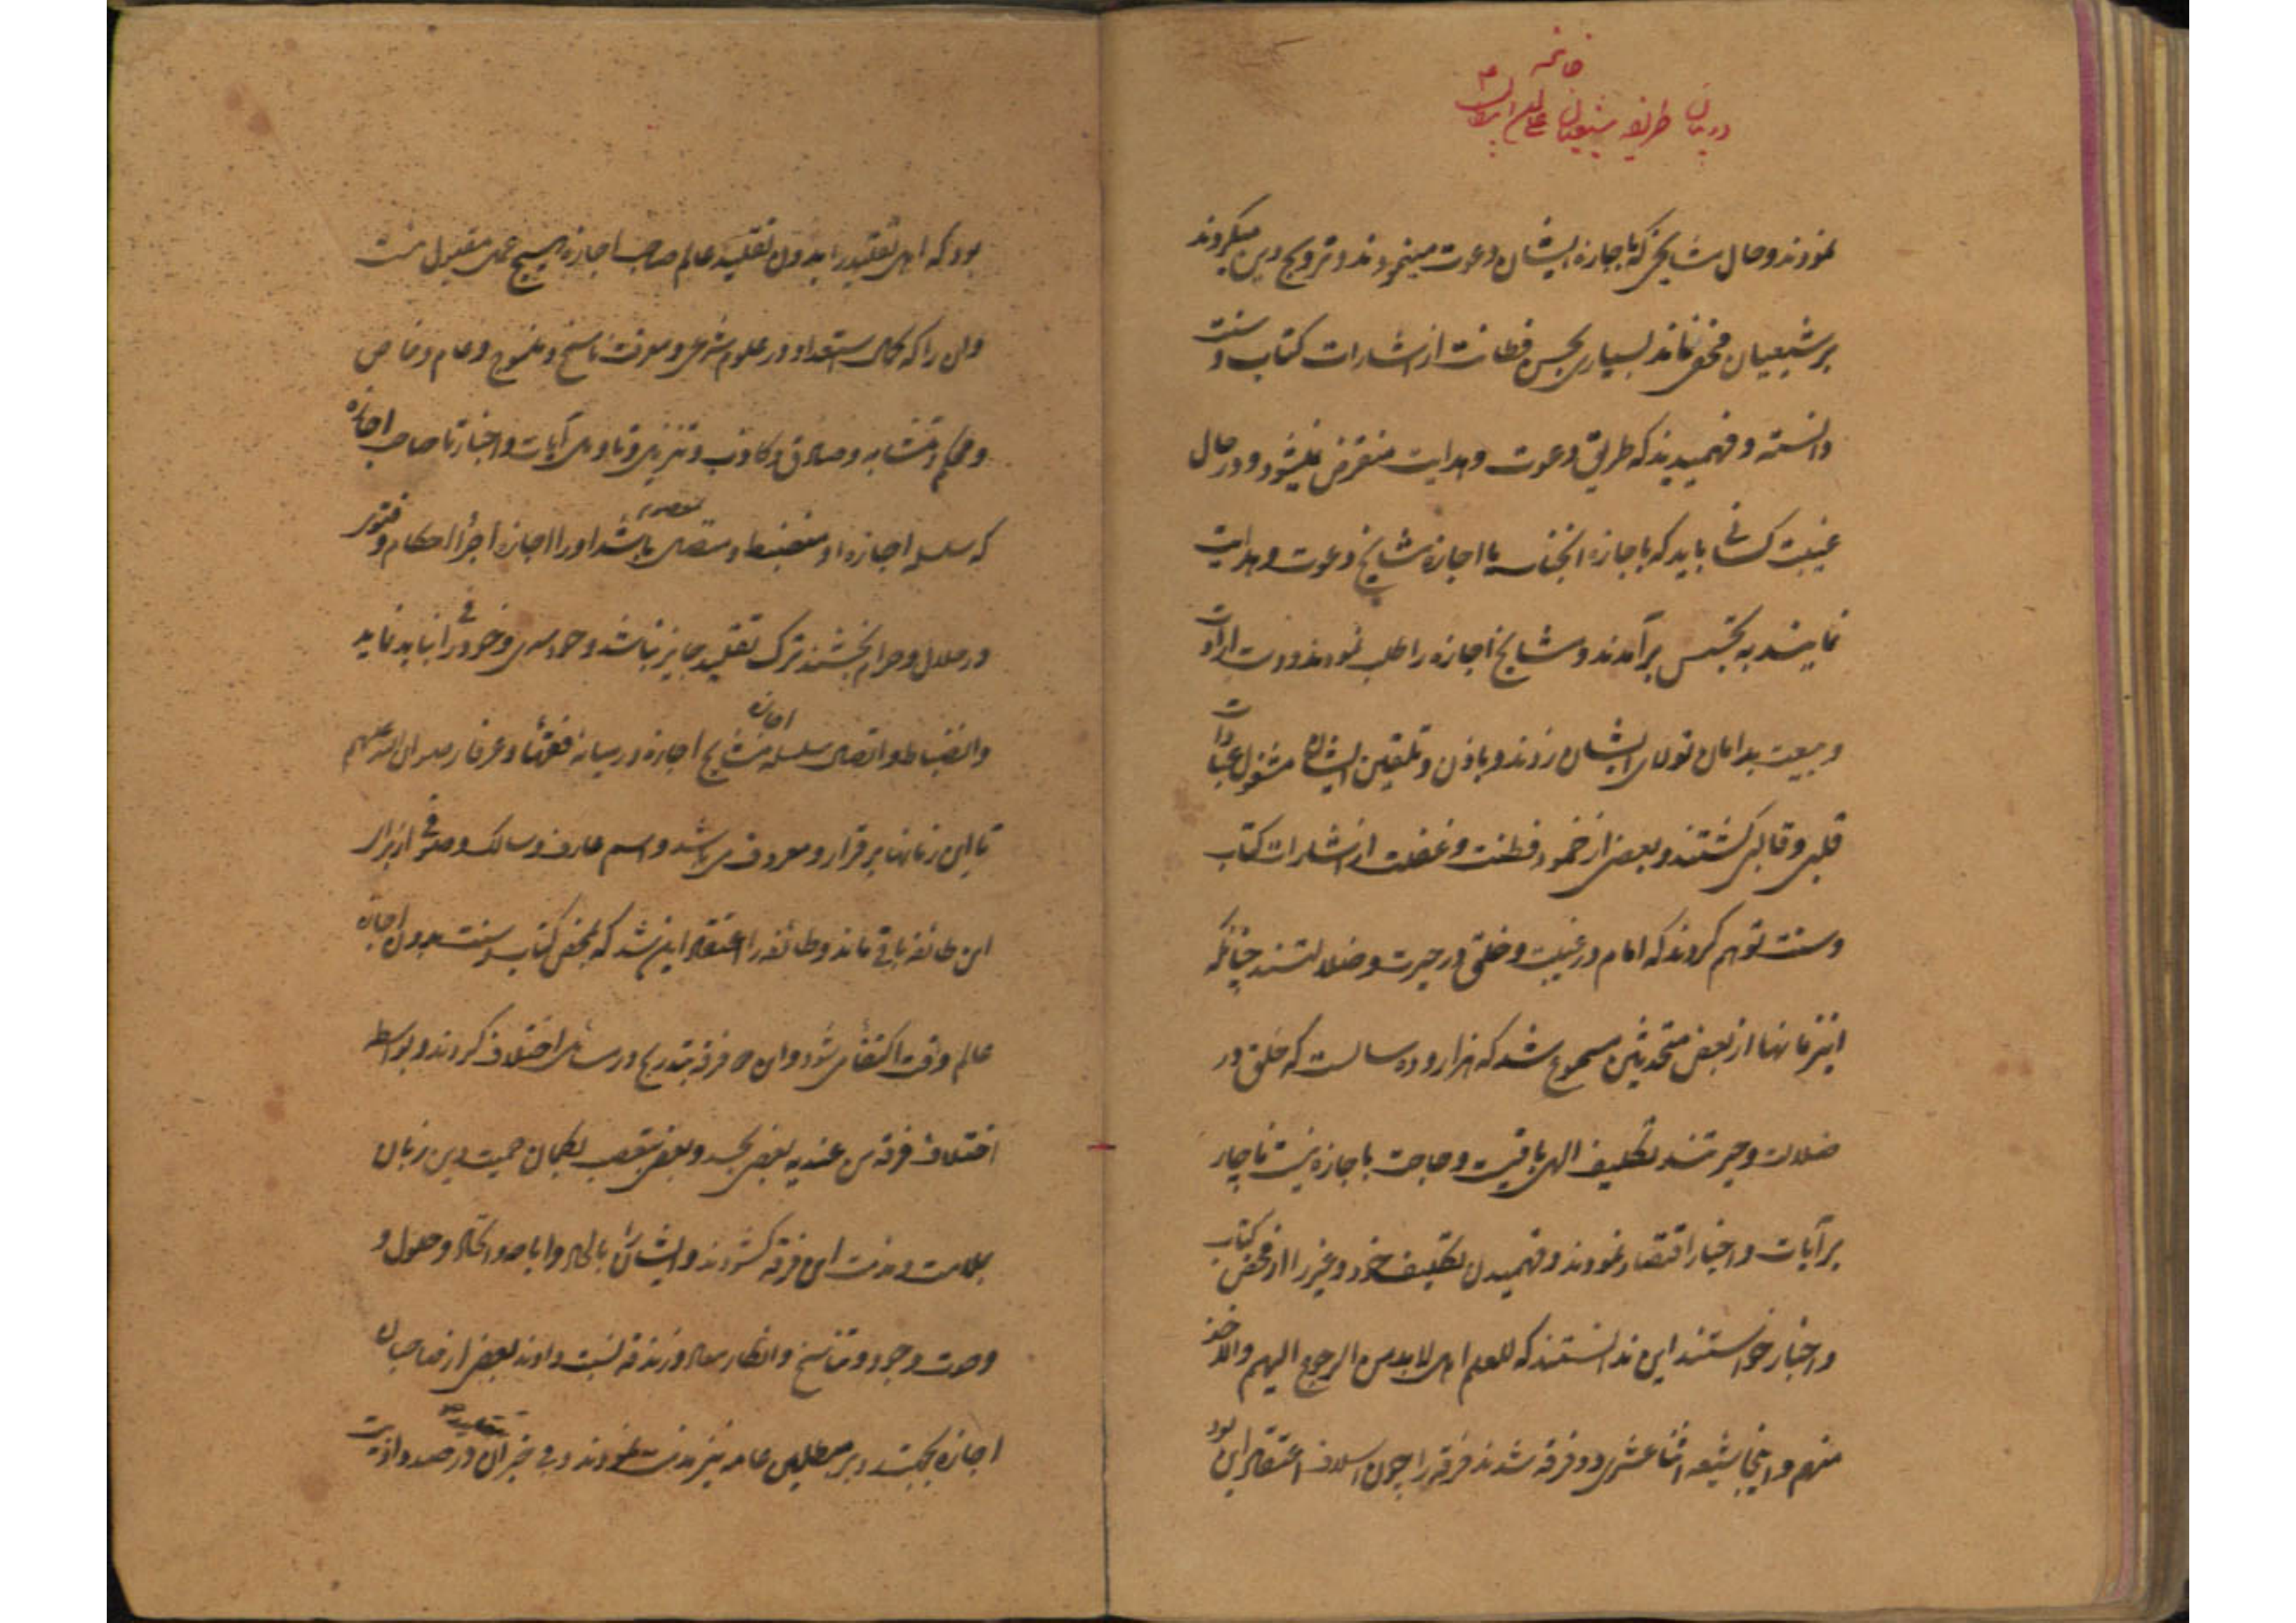 خاتمه
در بیان طریقه شیعیان
نمودند و حال مشایخی که باجازه ایشان دعوت مینمودند و ترویج دین میکردند
بر شیعیان مخفی نماند بسیاری بحسن فطانت از اشارات کتاب و سنت
دانسته و فهمیدند که طریق دعوت و هدایت منقرض نمیشود و در حال
غیبت کسانی باید که باجازه آنجناب یا اجازه مشایخ دعوت و هدایت
نمایند به تجسس برآمدند و مشایخ اجازه را طلب نمودند و دست ارادت
و بیعت بدامان تولای ایشان زدند و باذن و تلقین ایشان مشغول عبادات
قلبی و قالبی گشتند و بعضی از خمود فطنت و غفلت از اشارات کتاب
و سنت توهم کردند که امام در غیبت و خلق در حیرت و ضلالتند چنانکه
اینزمانها از بعض متحدثین مسموع شد که هزار و ده سالست که خلق در
ضلالت و حیرتند تکلیف الهی باقیست و حاجت باجازه نیست ناچار
بر آیات و اخبار اقتصار نمودند و فهمیدن تکلیف خود و غیر را از محض کتاب
و اخبار خواستند این ندانستند که للعلم اهل لابد من الرجوع الیهم والاخذ
منهم و اینجا شیعه اثناعشری دو فرقه شدند فرقه را چون اسلاف اعتقاد این بود
بود که اهل تقلید را بدون تقلید عالم صاحب اجازه هیچ عمل مقبول نیست
و آن را که کمال استعداد در علوم شرعی و معرفت ناسخ و منسوخ و عام و خاص
و محکم و متشابه و صادق و کاذب و تنزیل و تأویل آیات و اخبار تا صاحب اجازه
که سلسله اجازه او منضبط و متصل بمعصوم باشد او را اجازه اجراء احکام و فتوی
در حلال و حرام نبخشند ترک تقلید جایز نباشد و خودسری و خودرائی نباید نماید
و انضباط و اتصال سلسله اجازه مشایخ اجازه در میانه فقها و عرفا رضوان الله علیهم
تا این زمانها برقرار و معروف می باشد و اسم عارف و سالک و صوفی از برای
این طائفه باقی ماند و طائفه را اعتقاد این شد که بمحض کتاب و سنت بدون اجازه
عالم وقت اکتفا می شود و این دو فرقه بتدریج در مسائل اختلاف کردند و بواسطه
اختلاف فرقه من عندیه بعضی بحسد و بعضی بتعصب بگمان حمیت دین زبان
بملامت و مذمت این فرقه گشودند و ایشان را بالحاد و اباحه و اتحاد و حلول و
وحدت وجود و تناسخ و انکار معاد و زندقه نسبت دادند بعضی از صاحبان
اجازه بحجت و بر مطلبین عامه نیز مذمت نمودند و بی خبران مقلدین در صدد اذیت